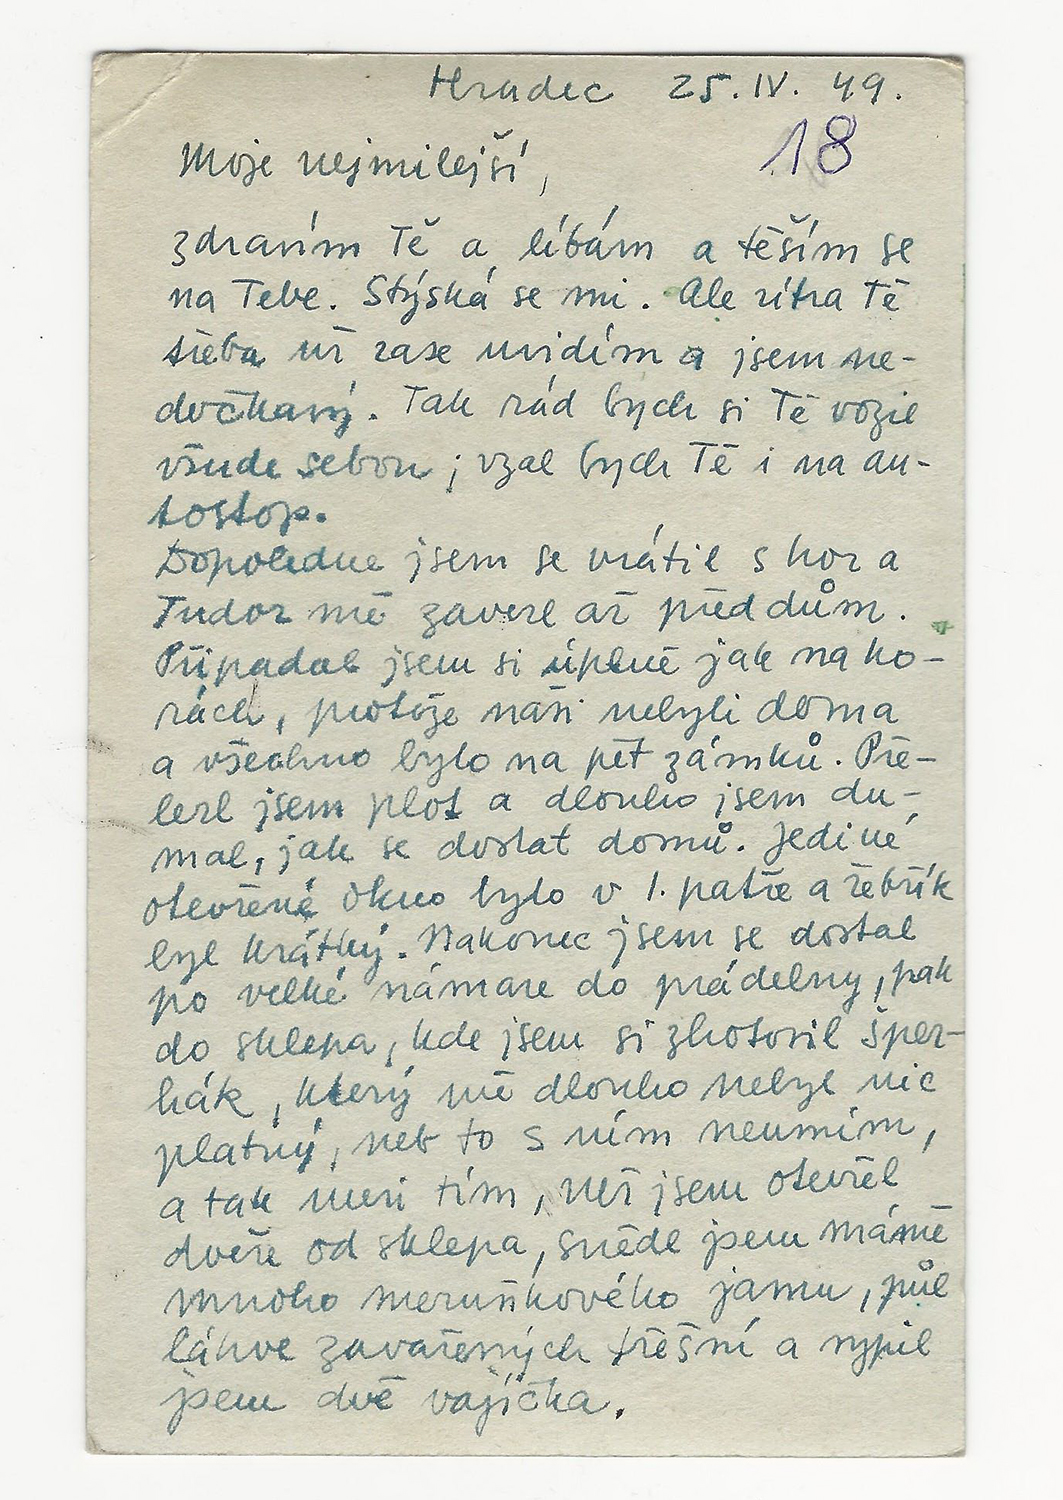 Hradec 25. IV. 49.
18
Moje nejmilejší,
zdravím Tě a líbám a těším se
na Tebe. Stýská se mi. Ale zítra Tě
třeba už zase uvidím a jsem ne-
dočkavý. Tak rád bych si Tě vozil
všude sebou; vzal bych Tě i na au-
tostop.
Dopoledne jsem se vrátil s hor a
Tudor mě zavezl až před dům.
Připadal jsem si úplně jak na ho-
rách, protože naši nebyli doma
a všechno bylo na pět zámků. Pře-
lezl jsem plot a dlouho jsem du-
mal, jak se dostat domů. Jediné
otevřené okno bylo v 1. patře a žebřík
byl krátký. Nakonec jsem se dostal
po velké námaze do prádelny, pak
do sklepa, kde jsem si zhotovil šper-
hák, který mě dlouho nebyl nic
platný, neb to s ním neumím,
a tak mezi tím, než jsem otevřel
dveře od sklepa, snědl jsem mámě
mnoho meruňkového jamu, půl
láhve zavařených třešní a vypil
jsem dvě vajíčka.